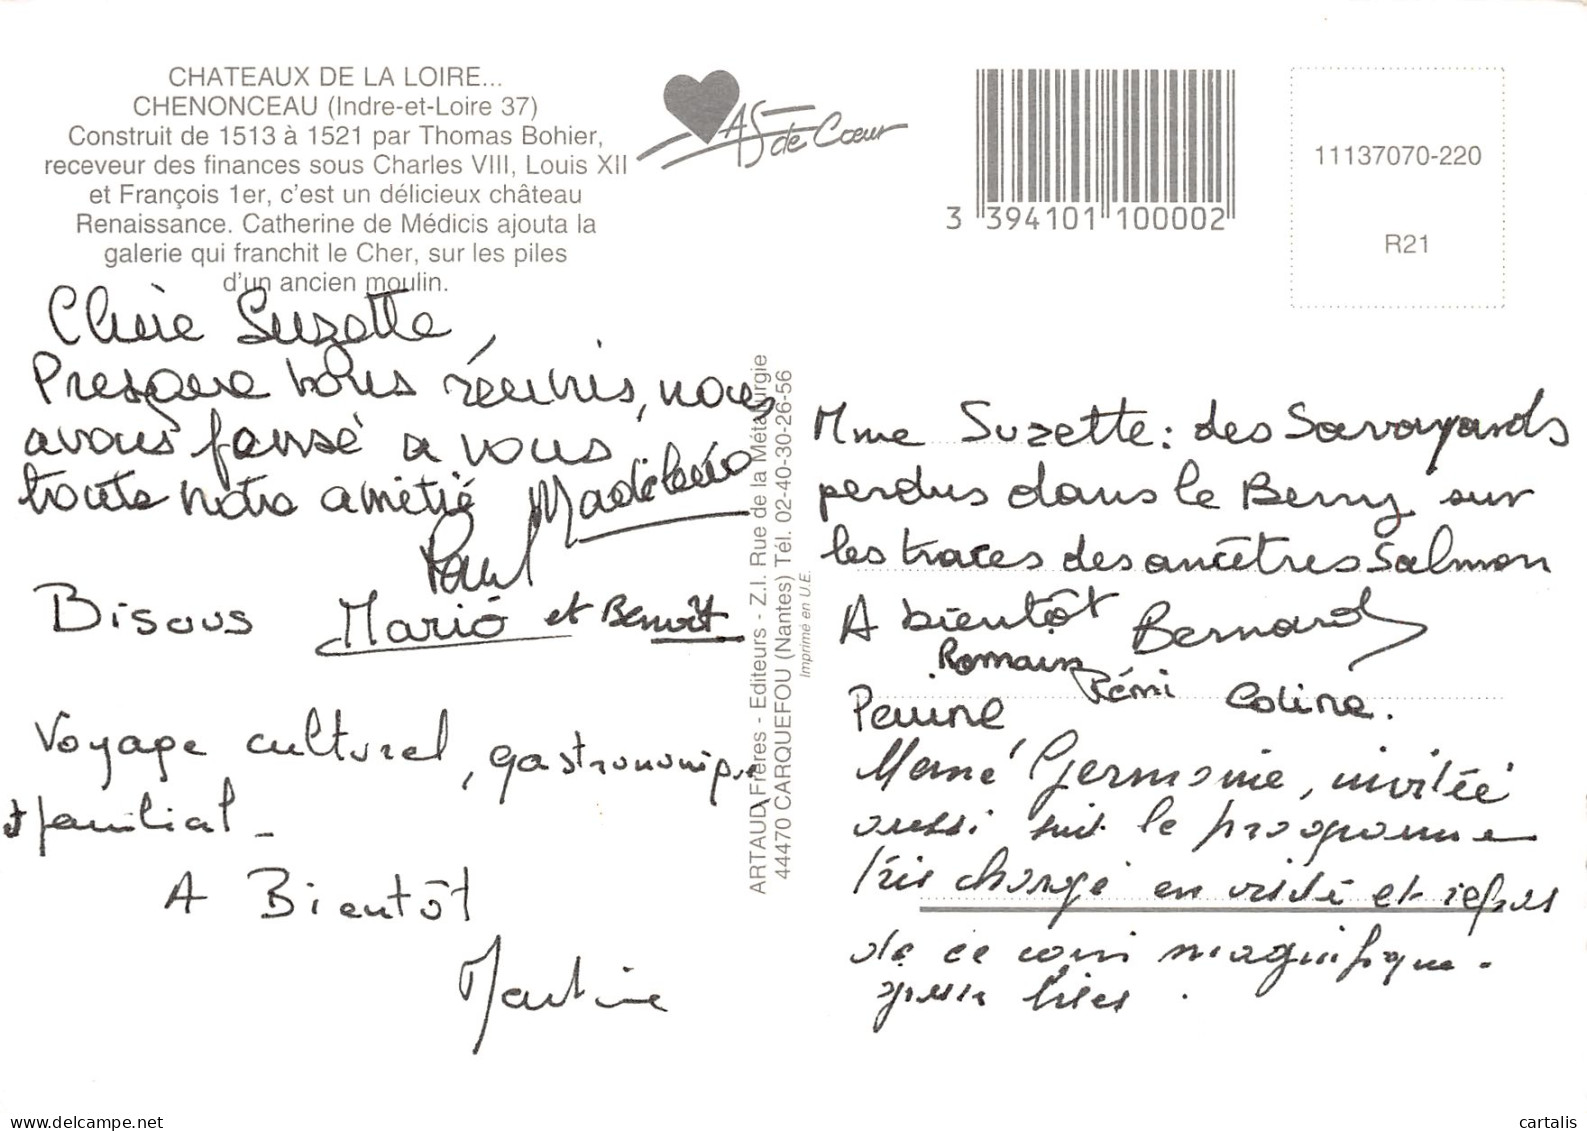 CHATEAUX DE LA LOIRE...
CHENONCEAU (Indre-et-Loire 37)
Construit de 1513 à 1521 par Thomas Bohier,
receveur des finances sous Charles VIII, Louis XII
et François 1er, c'est un délicieux château
Renaissance. Catherine de Médicis ajouta la
galerie qui franchit le Cher, sur les piles
d'un ancien moulin.
As de Cœur
3 394101 100002
11137070-220
R21
Chère Suzette,
Presque tous réunis, nous
avons pensé à vous
toute notre amitié Madeleine
Paul
Bisous Marie et Benoît
Voyage culturel, gastronomique
et familial_
A Bientôt
Martine
ARTAUD Frères - Editeurs - Z.I. Rue de la Métallurgie
44470 CARQUEFOU (Nantes) Tél. 02-40-30-26-56
Imprimé en U.E.
Mme Suzette : des Savoyards
perdus dans le Berry sur
les traces des ancêtres Salmon
A bientôt Bernard
Romain
Rémi Coline.
Perrine
Mamé Germaine, invitée
aussi suit le programme
très chargé en visite et repas
de ce coin magnifique.
bises.